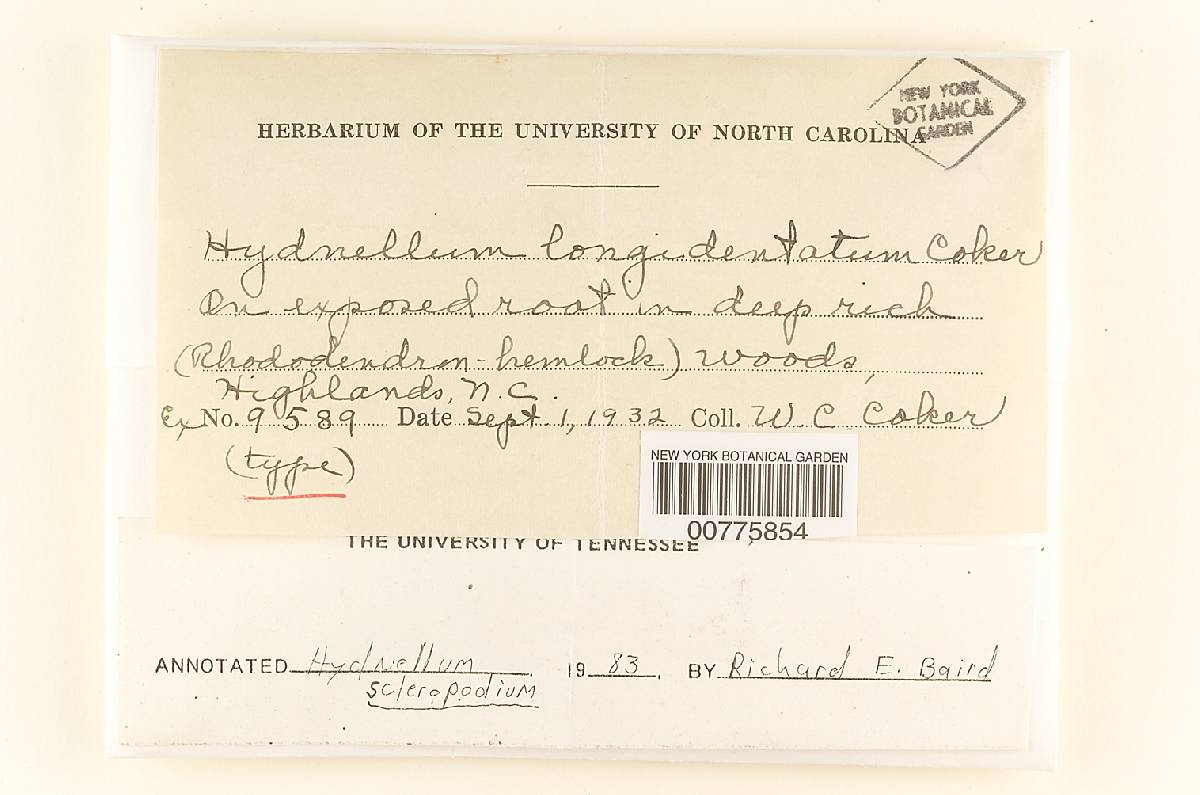 NEW YORK
BOTANICAL
GARDEN
HERBARIUM OF THE UNIVERSITY OF NORTH CAROLINA
Hydnellum longidentatum Coker
On exposed root in deep rich
(Rhododendron-hemlock) woods,
Highlands, N.C.
Ex No. 9589 Date Sept. 1, 1932 Coll. W C Coker
(type)
NEW YORK BOTANICAL GARDEN
00775854
THE UNIVERSITY OF TENNESSEE
ANNOTATED Hydnellum 1983. BY Richard E. Baird
scleropodium